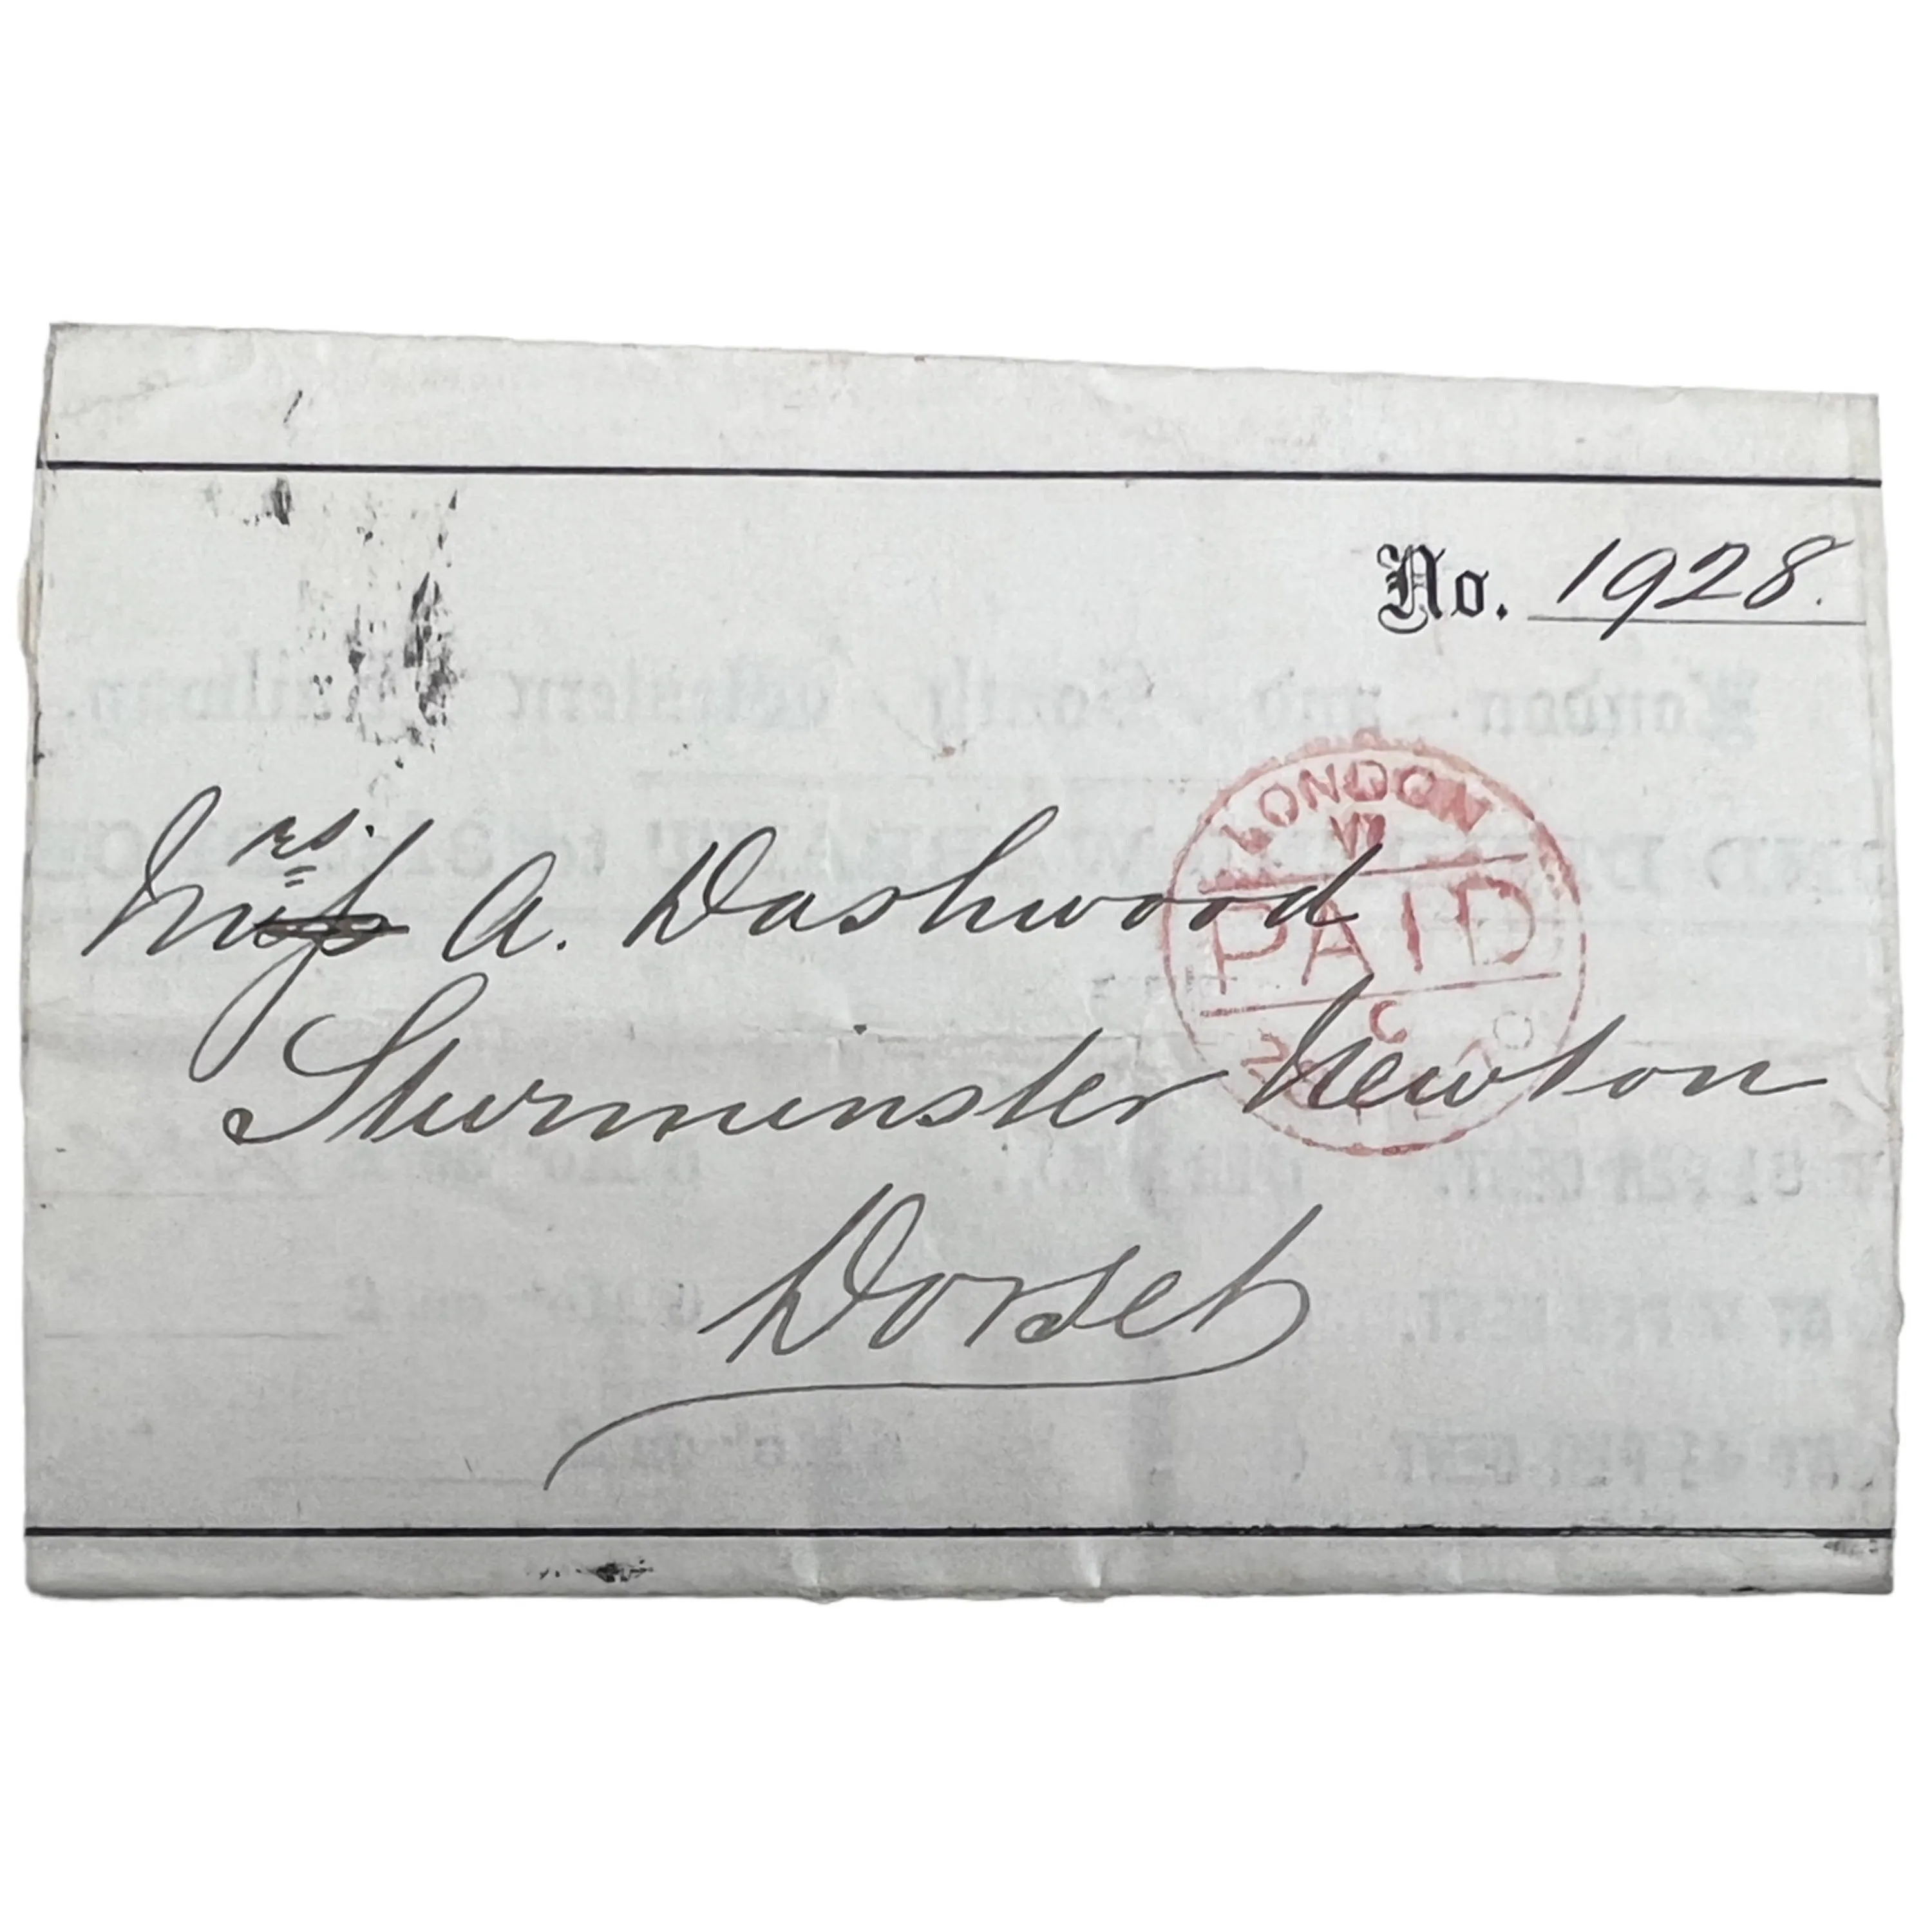 No. 1928.
Mrs. A. Dashwood
LONDON
PAID
C
Sturminster Newton
Dorset